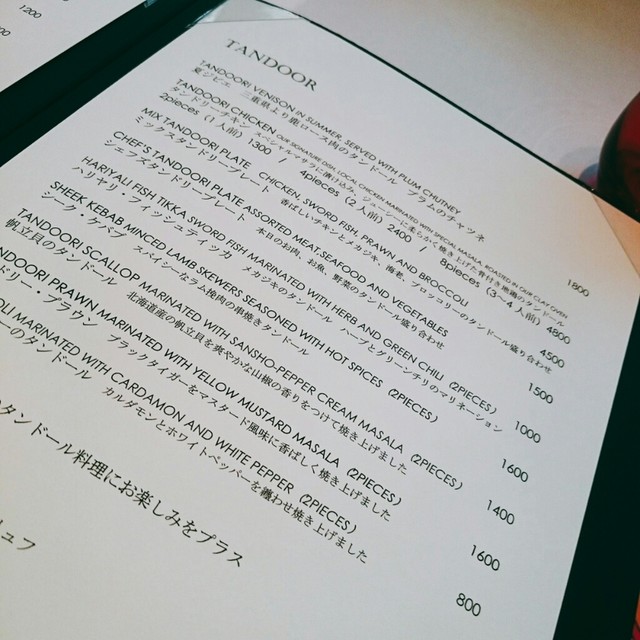 1200
TANDOOR
TANDOORI VENISON IN SUMMER, SERVED WITH PLUM CHUTNEY 1800
夏ジビエ 三重県より鹿ロース肉のタンドール プラムのチャツネ
TANDOORI CHICKEN OUR SIGNATURE DISH, LOCAL CHICKEN MARINATED WITH SPECIAL MASALA, ROASTED IN OUR CLAY OVEN
タンドリーチキン スペシャルマサラに漬け込み、ジューシーに柔らかく焼き上げた骨付き鶏のタンドール
2pieces (1人前) 1300 / 4pieces (2人前) 2400 / 8pieces (3〜4人前) 4800
MIX TANDOORI PLATE CHICKEN, SWORD FISH, PRAWN AND BROCCOLI 4500
ミックスタンドリープレート 香ばしいチキンとメカジキ、海老、ブロッコリーのタンドール盛り合わせ
CHEF'S TANDOORI PLATE ASSORTED MEAT, SEAFOOD AND VEGETABLES
シェフズタンドリープレート 本日のお肉、お魚、野菜のタンドール盛り合わせ
HARIYALI FISH TIKKA SWORD FISH MARINATED WITH HERB AND GREEN CHILI (2PIECES) 1500
ハリヤリ・フィッシュティッカ メカジキのタンドール ハーブとグリーンチリのマリネーション
SHEEK KEBAB MINCED LAMB SKEWERS SEASONED WITH HOT SPICES (2PIECES) 1000
シーク・ケバブ スパイシーなラム挽肉の串焼きタンドール
TANDOORI SCALLOP MARINATED WITH SANSHO-PEPPER CREAM MASALA (2PIECES) 1600
帆立貝のタンドール 北海道産の帆立貝を爽やかな山椒の香りをつけて焼き上げました
NDOORI PRAWN MARINATED WITH YELLOW MUSTARD MASALA (2PIECES) 1400
ドリー・プラウン ブラックタイガーをマスタード風味に香ばしく焼き上げました
OLI MARINATED WITH CARDAMON AND WHITE PEPPER (2PIECES) 1600
ーのタンドール カルダモンとホワイトペッパーを纏わせ焼き上げました
800
のタンドール料理にお楽しみをプラス
リュフ